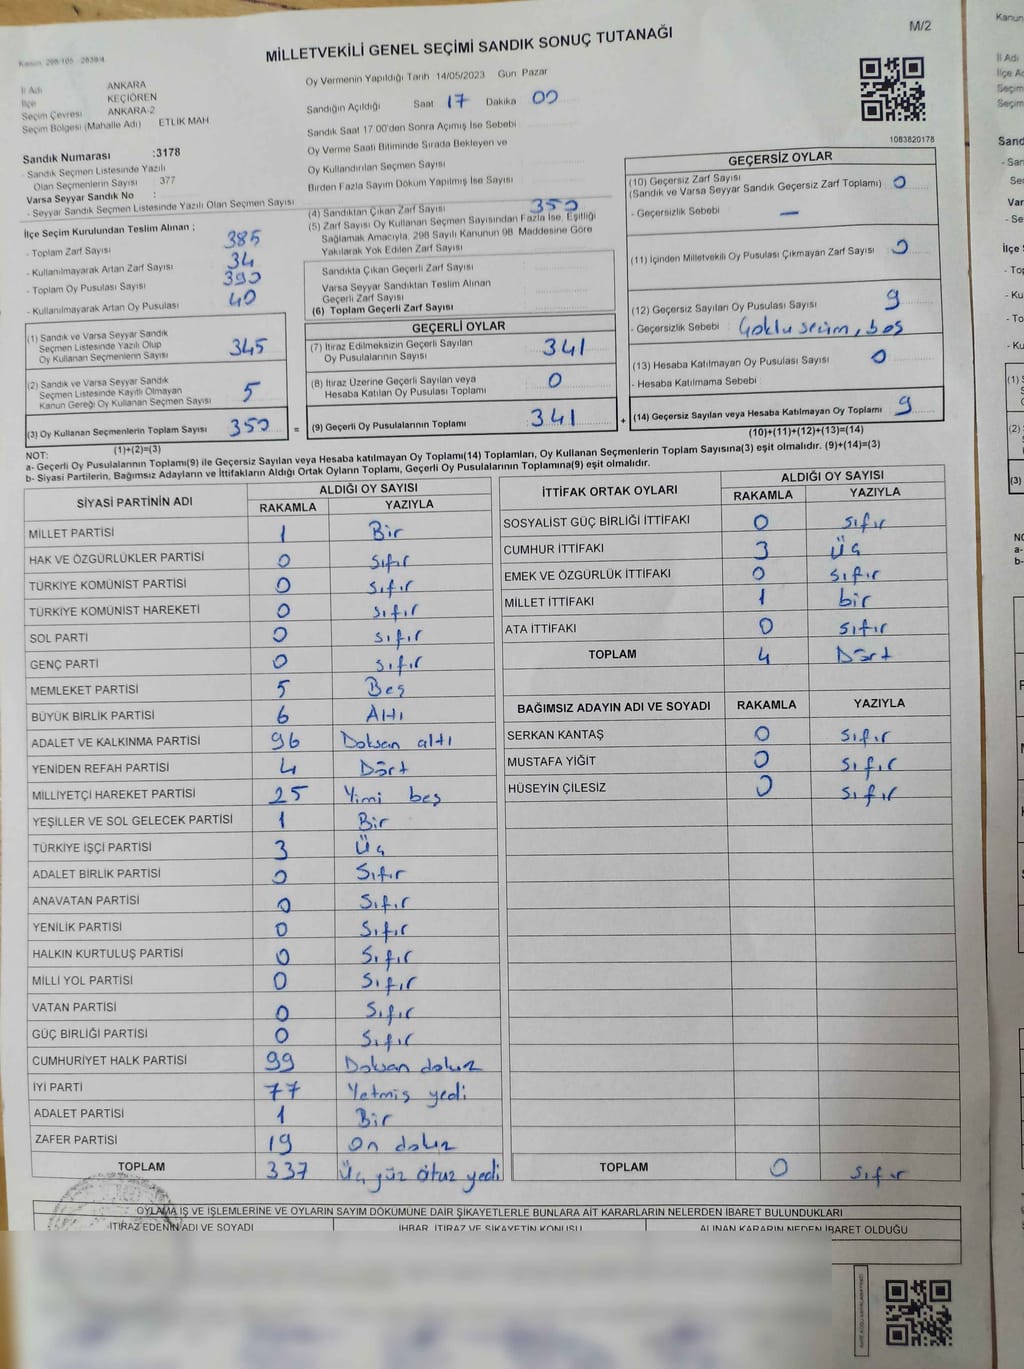 M/2
MİLLETVEKİLİ GENEL SEÇİMİ SANDIK SONUÇ TUTANAĞI
İl Adı ANKARA
İlçe KEÇİÖREN
Seçim Çevresi ANKARA-2
Seçim Bölgesi (Mahalle Adı) ETLİK MAH
Sandık Numarası :3178
- Sandık Seçmen Listesinde Yazılı
Olan Seçmenlerin Sayısı 377
Varsa Seyyar Sandık No :
- Seyyar Sandık Seçmen Listesinde Yazılı Olan Seçmen Sayısı
Oy Vermenin Yapıldığı Tarih 14/05/2023 Gün Pazar
Sandığın Açıldığı Saat 17 Dakika 00
Sandık Saat 17.00'den Sonra Açılmış İse Sebebi
Oy Verme Saati Bitiminde Sırada Bekleyen ve
Oy Kullandırılan Seçmen Sayısı
Birden Fazla Sayım Döküm Yapılmış İse Sayısı
1083820178
İlçe Seçim Kurulundan Teslim Alınan ;
- Toplam Zarf Sayısı 385
- Kullanılmayarak Artan Zarf Sayısı 34
- Toplam Oy Pusulası Sayısı 390
- Kullanılmayarak Artan Oy Pusulası 40
(1) Sandık ve Varsa Seyyar Sandık
Seçmen Listesinde Yazılı Olup
Oy Kullanan Seçmenlerin Sayısı 345
(2) Sandık ve Varsa Seyyar Sandık
Seçmen Listesinde Kayıtlı Olmayan
Kanun Gereği Oy Kullanan Seçmen Sayısı 5
(3) Oy Kullanan Seçmenlerin Toplam Sayısı 350
(1)+(2)=(3)
(4) Sandıktan Çıkan Zarf Sayısı 350
(5) Zarf Sayısı Oy Kullanan Seçmen Sayısından Fazla İse, Eşitliği
Sağlamak Amacıyla, 298 Sayılı Kanunun 98. Maddesine Göre
Yakılarak Yok Edilen Zarf Sayısı
Sandıkta Çıkan Geçerli Zarf Sayısı
Varsa Seyyar Sandıktan Teslim Alınan
Geçerli Zarf Sayısı
(6) Toplam Geçerli Zarf Sayısı
GEÇERLİ OYLAR
(7) İtiraz Edilmeksizin Geçerli Sayılan
Oy Pusulalarının Sayısı 341
(8) İtiraz Üzerine Geçerli Sayılan veya
Hesaba Katılan Oy Pusulası Toplamı 0
= (9) Geçerli Oy Pusulalarının Toplamı 341 +
GEÇERSİZ OYLAR
(10) Geçersiz Zarf Sayısı
(Sandık ve Varsa Seyyar Sandık Geçersiz Zarf Toplamı) 0
- Geçersizlik Sebebi —
(11) İçinden Milletvekili Oy Pusulası Çıkmayan Zarf Sayısı 0
(12) Geçersiz Sayılan Oy Pusulası Sayısı 9
- Geçersizlik Sebebi Çoklu seçim, boş
(13) Hesaba Katılmayan Oy Pusulası Sayısı 0
- Hesaba Katılmama Sebebi
(14) Geçersiz Sayılan veya Hesaba Katılmayan Oy Toplamı 9
(10)+(11)+(12)+(13)=(14)
NOT:
a- Geçerli Oy Pusulalarının Toplamı(9) ile Geçersiz Sayılan veya Hesaba katılmayan Oy Toplamı(14) Toplamları, Oy Kullanan Seçmenlerin Toplam Sayısına(3) eşit olmalıdır. (9)+(14)=(3)
b- Siyasi Partilerin, Bağımsız Adayların ve İttifakların Aldığı Ortak Oyların Toplamı, Geçerli Oy Pusulalarının Toplamına(9) eşit olmalıdır.
SİYASİ PARTİNİN ADI ALDIĞI OY SAYISI
RAKAMLA YAZIYLA
MİLLET PARTİSİ 1 Bir
HAK VE ÖZGÜRLÜKLER PARTİSİ 0 sıfır
TÜRKİYE KOMÜNİST PARTİSİ 0 sıfır
TÜRKİYE KOMÜNİST HAREKETİ 0 sıfır
SOL PARTİ 0 sıfır
GENÇ PARTİ 0 sıfır
MEMLEKET PARTİSİ 5 Beş
BÜYÜK BİRLİK PARTİSİ 6 Altı
ADALET VE KALKINMA PARTİSİ 96 Doksan altı
YENİDEN REFAH PARTİSİ 4 Dört
MİLLİYETÇİ HAREKET PARTİSİ 25 Yimi beş
YEŞİLLER VE SOL GELECEK PARTİSİ 1 Bir
TÜRKİYE İŞÇİ PARTİSİ 3 Üç
ADALET BİRLİK PARTİSİ 0 Sıfır
ANAVATAN PARTİSİ 0 Sıfır
YENİLİK PARTİSİ 0 Sıfır
HALKIN KURTULUŞ PARTİSİ 0 Sıfır
MİLLİ YOL PARTİSİ 0 Sıfır
VATAN PARTİSİ 0 Sıfır
GÜÇ BİRLİĞİ PARTİSİ 0 Sıfır
CUMHURİYET HALK PARTİSİ 99 Doksan dokuz
İYİ PARTİ 77 Yetmiş yedi
ADALET PARTİSİ 1 Bir
ZAFER PARTİSİ 19 On dokuz
TOPLAM 337 Üç yüz otuz yedi
İTTİFAK ORTAK OYLARI ALDIĞI OY SAYISI
RAKAMLA YAZIYLA
SOSYALİST GÜÇ BİRLİĞİ İTTİFAKI 0 sıfır
CUMHUR İTTİFAKI 3 Üç
EMEK VE ÖZGÜRLÜK İTTİFAKI 0 sıfır
MİLLET İTTİFAKI 1 bir
ATA İTTİFAKI 0 sıfır
TOPLAM 4 Dört
BAĞIMSIZ ADAYIN ADI VE SOYADI RAKAMLA YAZIYLA
SERKAN KANTAŞ 0 sıfır
MUSTAFA YİĞİT 0 sıfır
HÜSEYİN ÇİLESİZ 0 sıfır
TOPLAM 0 sıfır
OYLAMA İŞ VE İŞLEMLERİNE VE OYLARIN SAYIM DÖKÜMÜNE DAİR ŞİKAYETLERLE BUNLARA AİT KARARLARIN NELERDEN İBARET BULUNDUKLARI
İTİRAZ EDENİN ADI VE SOYADI İHBAR, İTİRAZ VE ŞİKAYETİN KONUSU ALINAN KARARIN NEDEN İBARET OLDUĞU